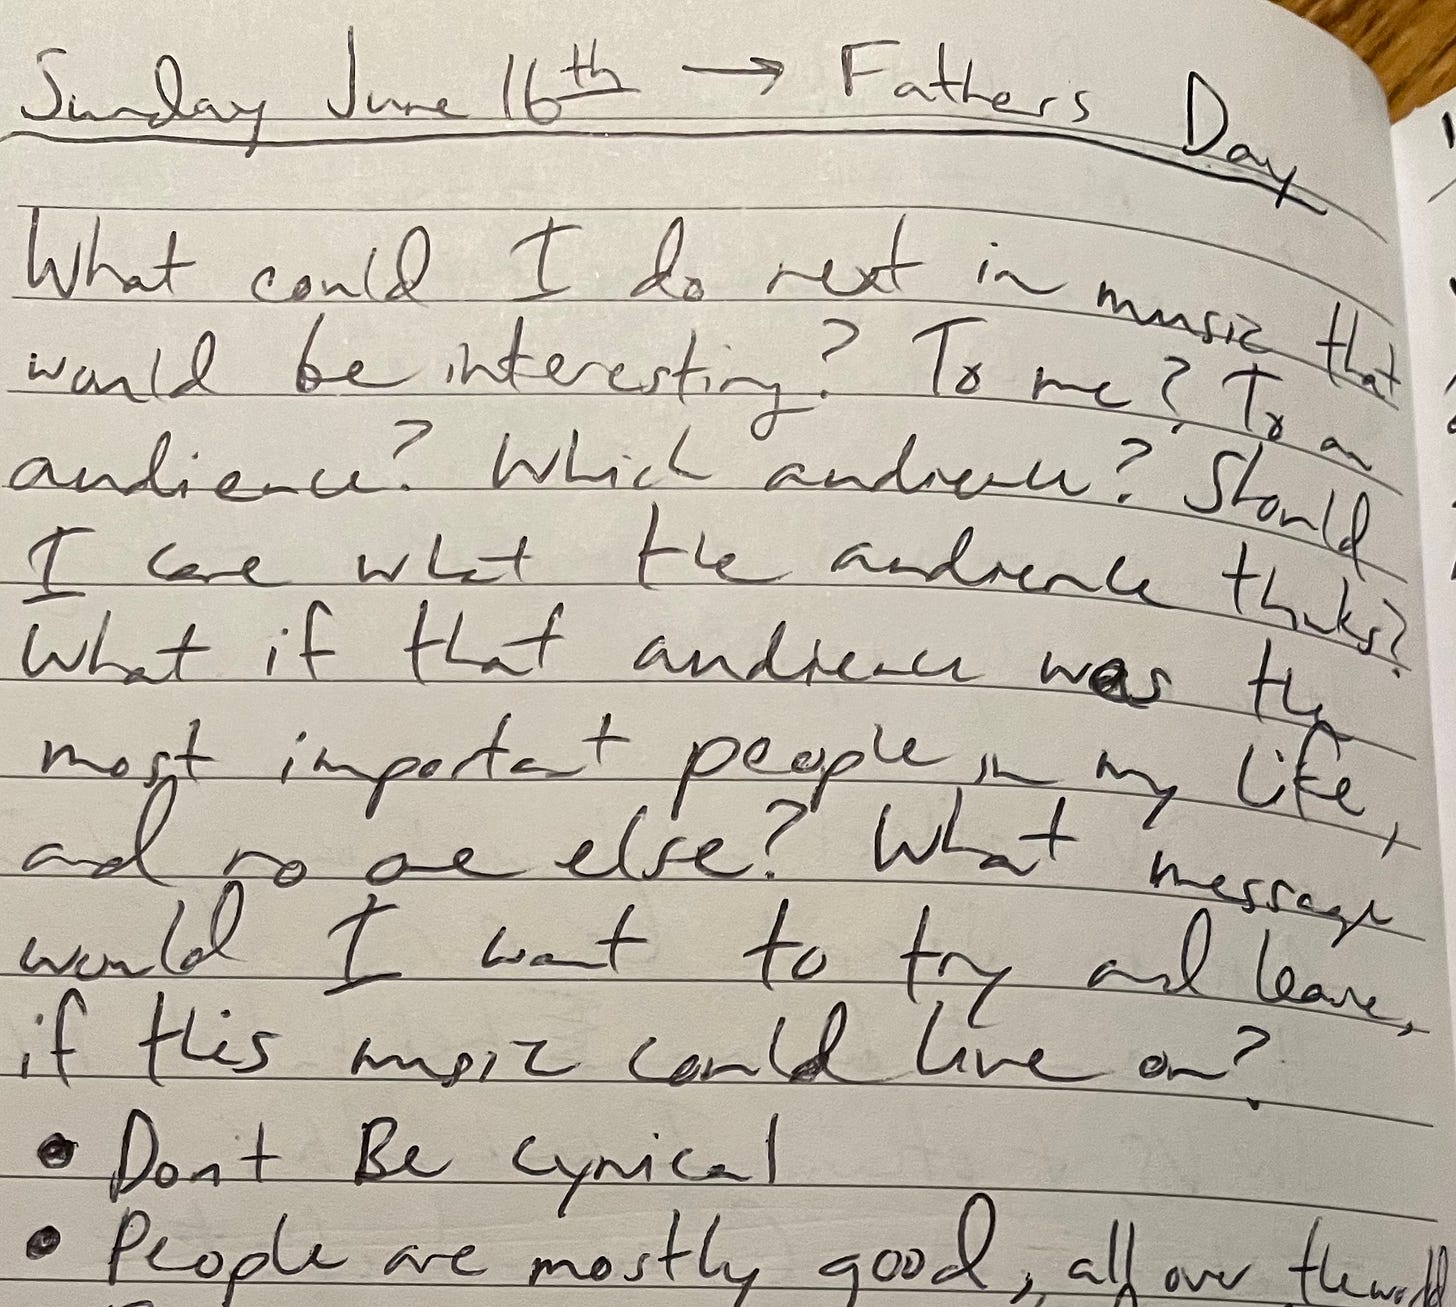 Sunday June 16th → Fathers Day
What could I do next in music that
would be interesting? To me? To an
audience? Which audience? Should
I care what the audience thinks?
What if that audience was the
most important people in my life,
and no one else? What message
would I want to try and leave,
if this music could live on?
• Dont Be Cynical
• People are mostly good, all over the world